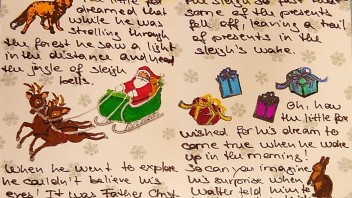 The little fox
dreamed that
while he was
strolling through
the forest he saw a light
in the distance and heard
the jingle of sleigh
bells.
When he went to explore
he couldn't believe his
eyes! It was Father Christ
the sleigh so fast that
some of the presents
fell off, leaving a trail
of presents in the
sleigh's wake.
Oh, how
the little fox
wished for his dream to
come true when he woke
up in the morning!
So can you imagine
his surprise when
Walter told him to